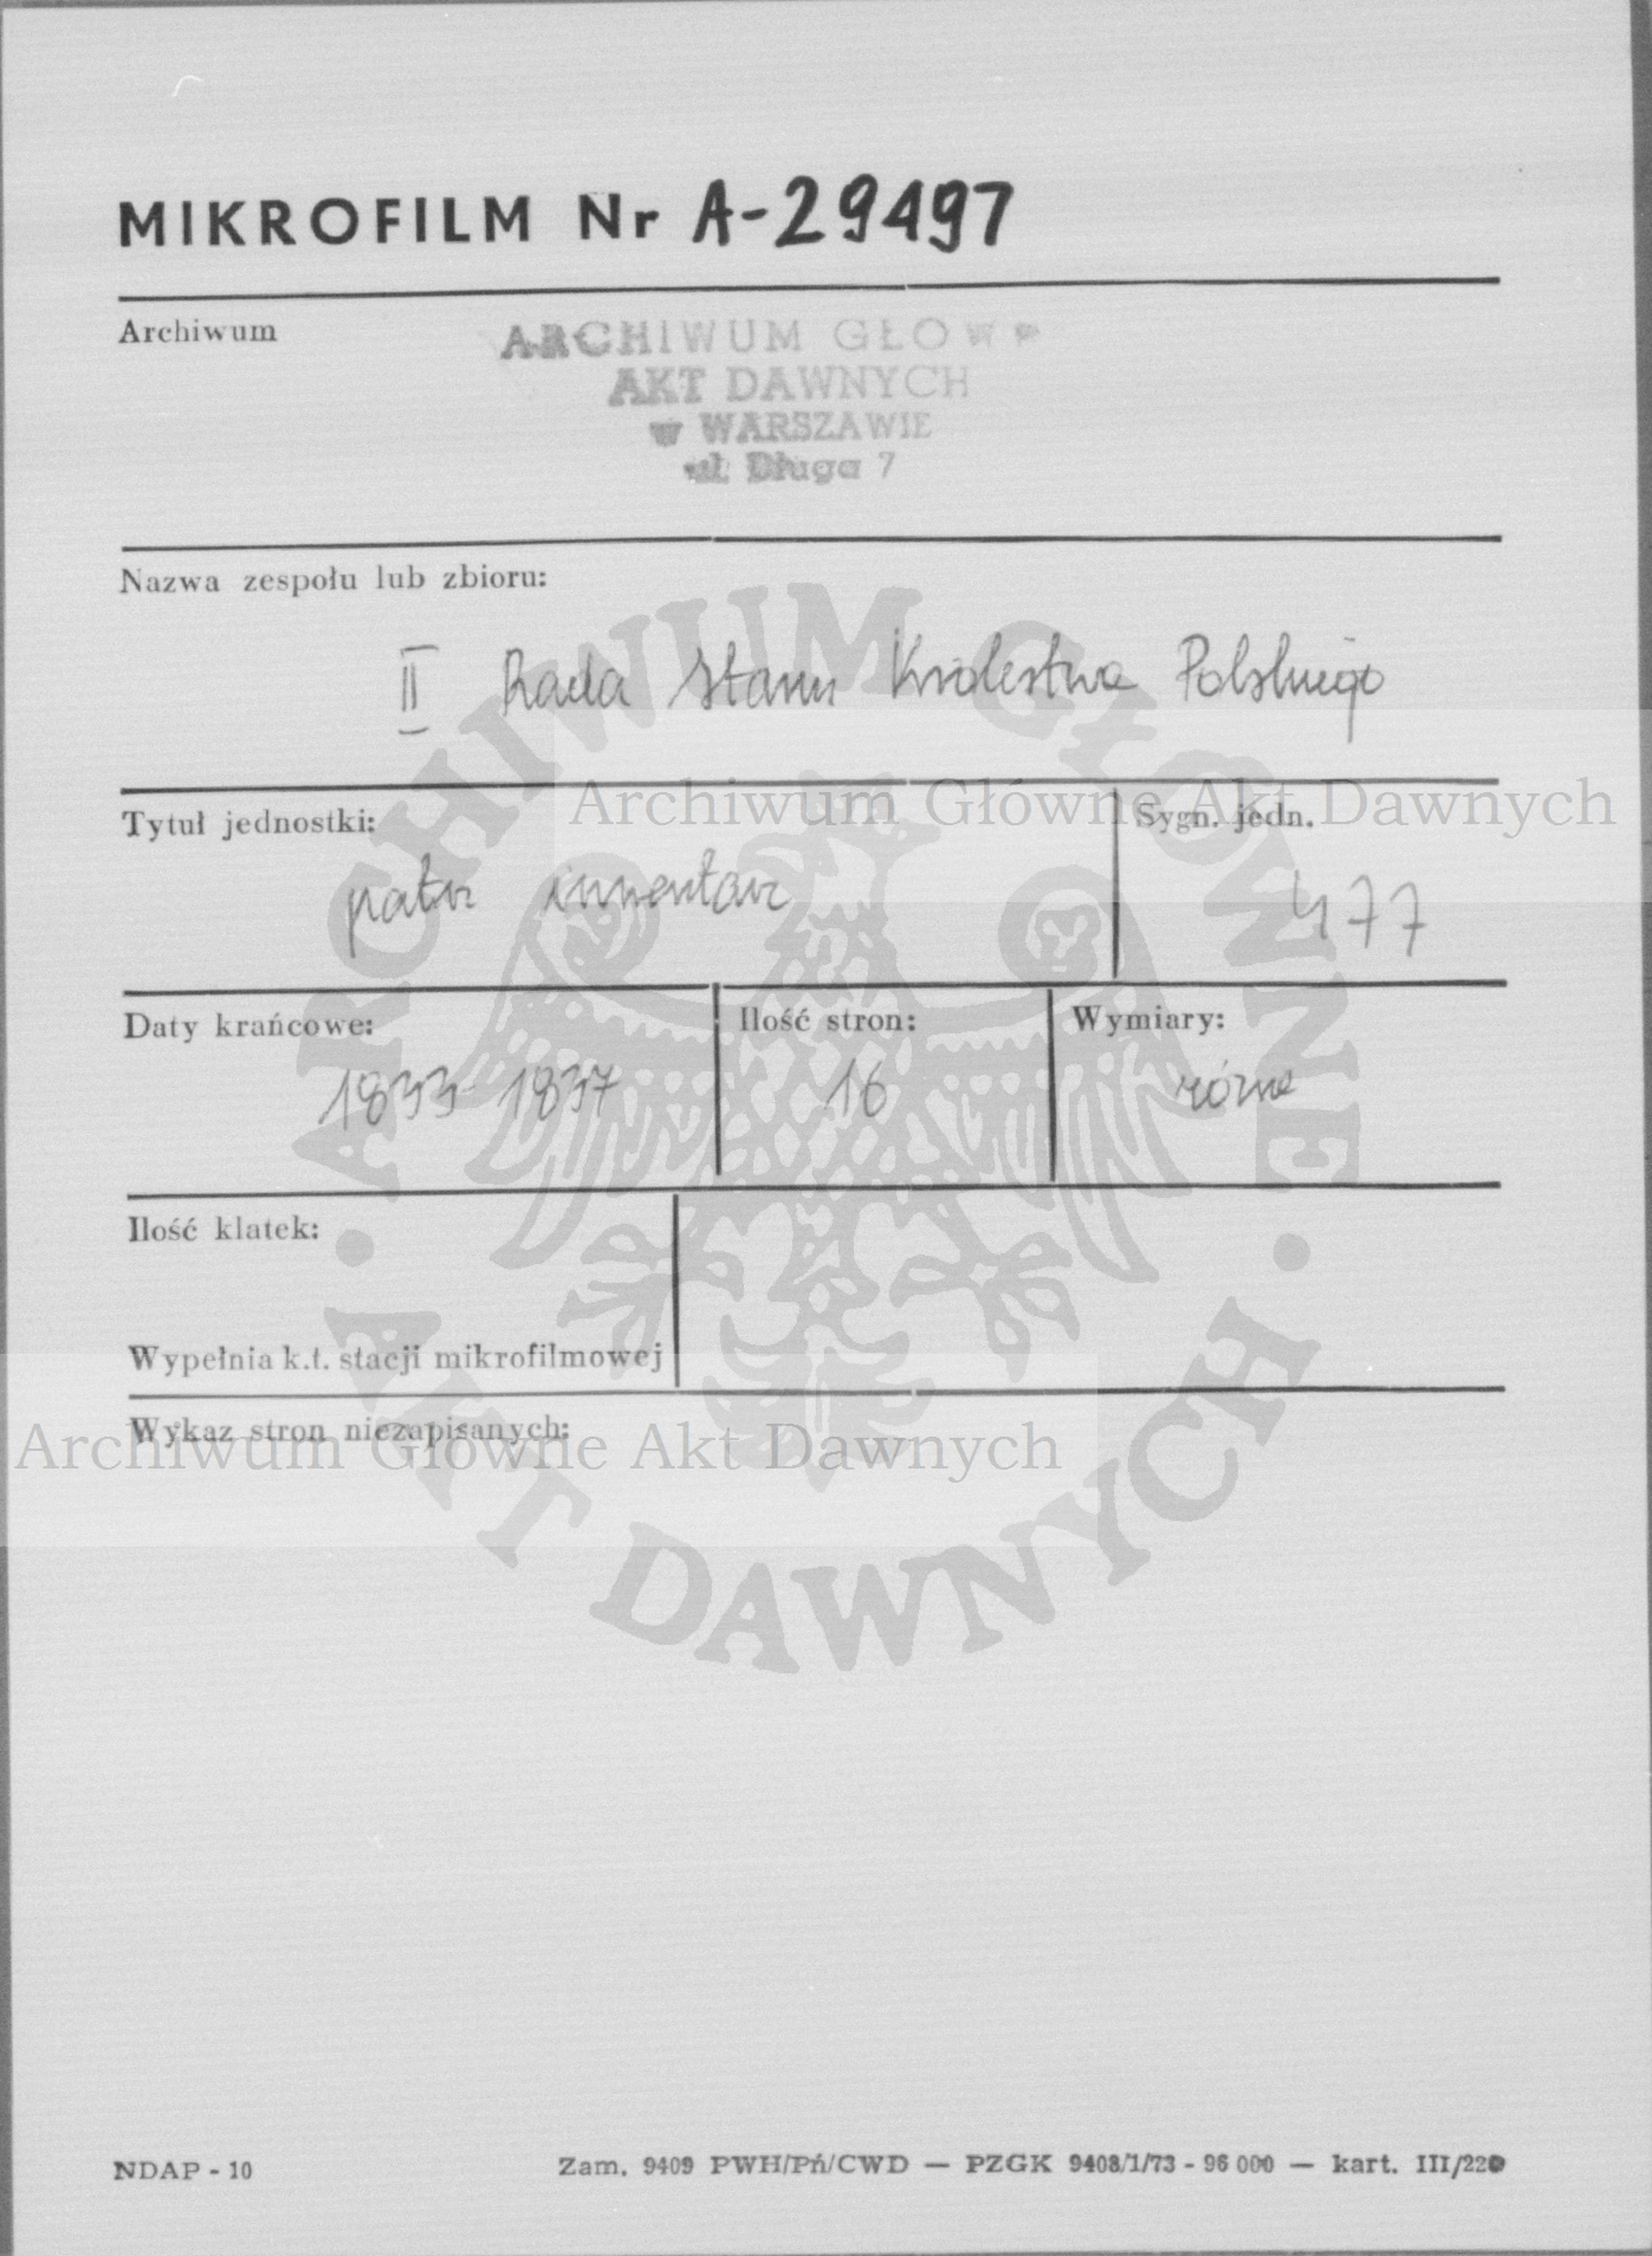 MIKROFILM Nr A-29497
Archiwum
ARCHIWUM GŁÓW
AKT DAWNYCH
w WARSZAWIE
ul. Długa 7
Nazwa zespołu lub zbioru:
II Rada Stanu Królestwa Polskiego
Archiwum Główne Akt Dawnych
Tytuł jednostki:
Sygn. jedn.
patrz inwentarz
477
Daty krańcowe:
Ilość stron:
Wymiary:
1833-1837
16
różne
Ilość klatek:
Wypełnia k.t. stacji mikrofilmowej
Wykaz stron niezapisanych:
Archiwum Główne Akt Dawnych
ARCHIWUM GŁÓWNE · AKT DAWNYCH ·
NDAP - 10
Zam. 9409 PWH/Pń/CWD — PZGK 9408/1/73 - 96 000 — kart. III/220